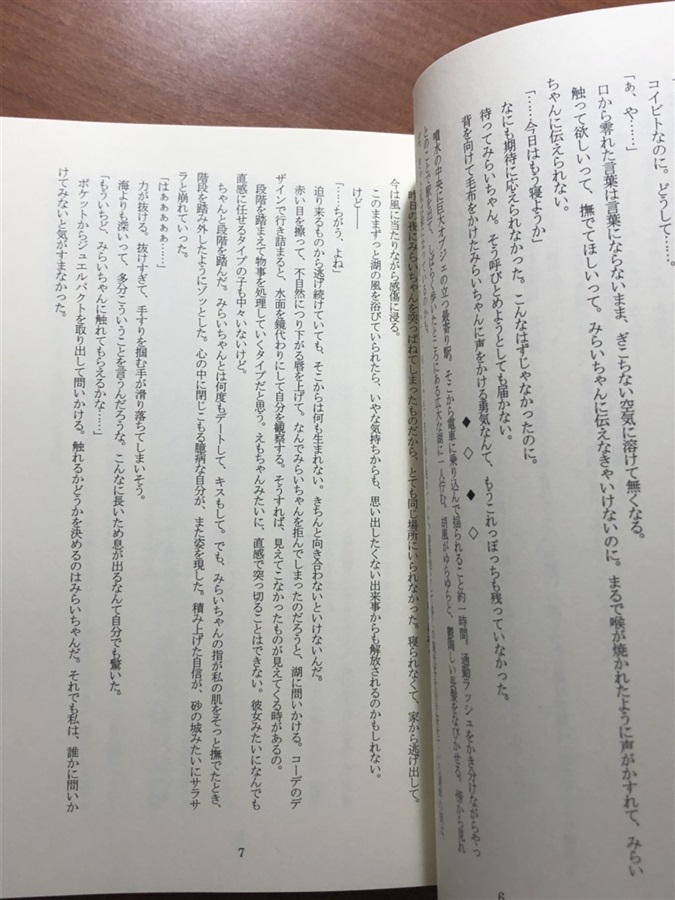 コイビトなのに。どうして……。
「ぁ、や……」
口から零れた言葉は言葉にならないまま、ぎこちない空気に溶けて無くなる。
触って欲しいって、撫でてほしいって。みらいちゃんに伝えなきゃいけないのに。まるで喉が焼かれたように声がかすれて、みらい
ちゃんに伝えられない。
「……今日はもう寝ようか」
なにも期待に応えられなかった。こんなはずじゃなかったのに。
待ってみらいちゃん。そう呼びとめようとしても届かない。
背を向けて毛布をかけたみらいちゃんに声をかける勇気なんて、もうこれっぽっちも残っていなかった。
◆ ◇ ◆ ◇
噴水の中央に巨大オブジェの立つ最寄り駅。そこから電車に乗り込んで揺られること約一時間。通勤ラッシュをかき分けながらやっ
とのことで駅を出て、しばらく歩いたところにある広大な湖に一人佇む。
昨日の夜にみらいちゃんを突っぱねてしまったものだから、とても同じ場所にいられなかった。寝られなくて、家から逃げ出して。
今は風に当たりながら感傷に浸る。
このままずっと湖の風を浴びていられたら、いやな気持ちからも、思い出したくない出来事からも解放されるのかもしれない。
けど――
「……ちがう、よね」
迫り来るものから逃げ続けていても、そこからは何も生まれない。きちんと向き合わないといけないんだ。
赤い目を擦って、不自然につり下がる唇を上げて。なんでみらいちゃんを拒んでしまったのだろうと、湖に問いかける。コーデのデ
ザインで行き詰まると、水面を鏡代わりにして自分を観察する。そうすれば、見えてこなかったものが見えてくる時があるの。
段階を踏まえて物事を処理していくタイプだと思う。えもちゃんみたいに、直感で突っ切ることはできない。彼女みたいになんでも
直感に任せるタイプの子も中々いないけど。
ちゃんと段階を踏んだ。みらいちゃんとは何度もデートして、キスもして。でも、みらいちゃんの指が私の肌をそっと撫でたとき、
階段を踏み外したようにゾッとした。心の中に閉じこもる臆病な自分が、また姿を現した。積み上げた自信が、砂の城みたいにサラサ
ラと崩れていった。
「はぁぁぁぁぁ……」
力が抜ける。抜けすぎて、手すりを掴む手が滑り落ちてしまいそう。
海よりも深いって、多分こういうことを言うんだろうな。こんなに長いため息が出るなんて自分でも驚いた。
「もういちど、みらいちゃんに触れてもらえるかな……」
ポケットからジュエルパクトを取り出して問いかける。触れるかどうかを決めるのはみらいちゃんだ。それでも私は、誰かに問いか
けてみないと気がすまなかった。
7
6